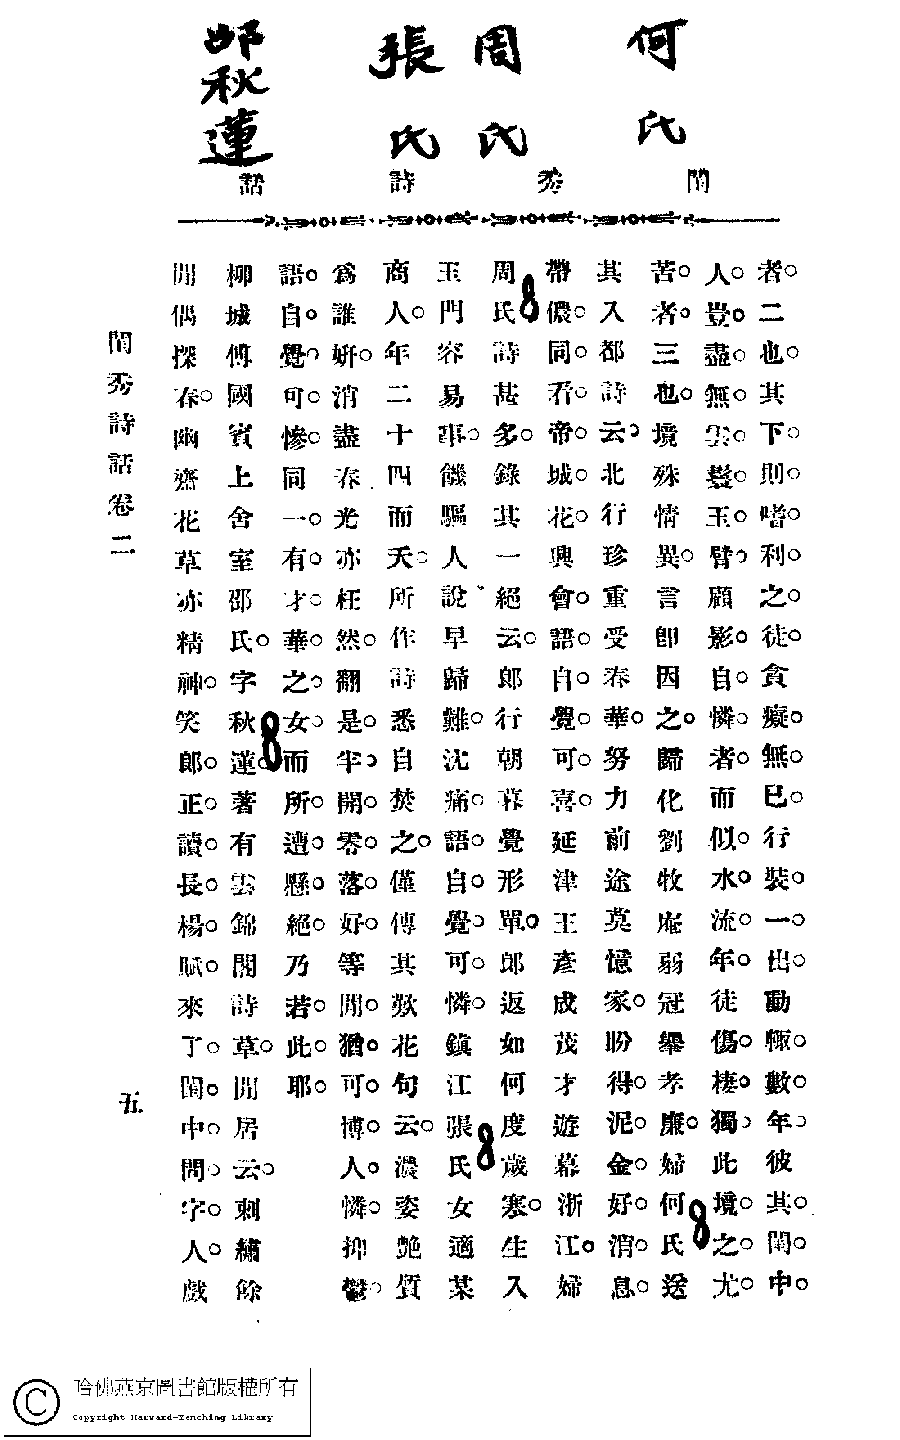 何氏
周氏
張氏
邵秋蓮
閨秀詩話
者。二也。其下。則。嗜。利。之。徒。貪癡。無。已。行裝。一。出。動輒。數。年。彼其。閨。中。
人。豈。盡。無。雲。鬟。玉。臂。顧影。自。憐。者。而似。水。流。年。徒傷。棲。獨。此境。之。尤。
苦。者。三也。境殊情異。言卽因之。歸化劉牧庵弱冠舉孝廉。婦何氏送
其入都詩云。北行珍重受春華。努力前途莫憶家。盼得。泥金。好。消。息。
帶儂。同。看。帝。城。花。興會。語。自。覺。可。喜。延津王彥成茂才遊幕浙江。婦
周氏詩甚多。錄其一絕云。郎行朝暮覺形單。郎返如何度歲寒。生入
玉門容易事。饑驅人說早歸難。沈痛。語。自。覺。可。憐。鎮江張氏女適某
商人。年二十四而夭。所作詩悉自焚之。僅傳其歎花句云。濃姿艷質
爲誰妍。消盡春光亦枉然。翻是。半。開。零。落。好。等閒。猶。可。博。人。憐。抑鬱。
語。自。覺。可。慘。同一。有。才。華。之。女。而所。遭。懸。絕。乃若。此。耶。
柳城傅國賓上舍室邵氏。字秋蓮。著有雲錦閣詩草。閒居云。刺繡餘
閒偶探春。幽齋花草亦精神。笑郎。正。讀。長。楊。賦。來了。閨。中。問。字。人。戲
閨秀詩話卷二
五
哈佛燕京圖書館版權所有
Copyright Harvard-Yenching Library